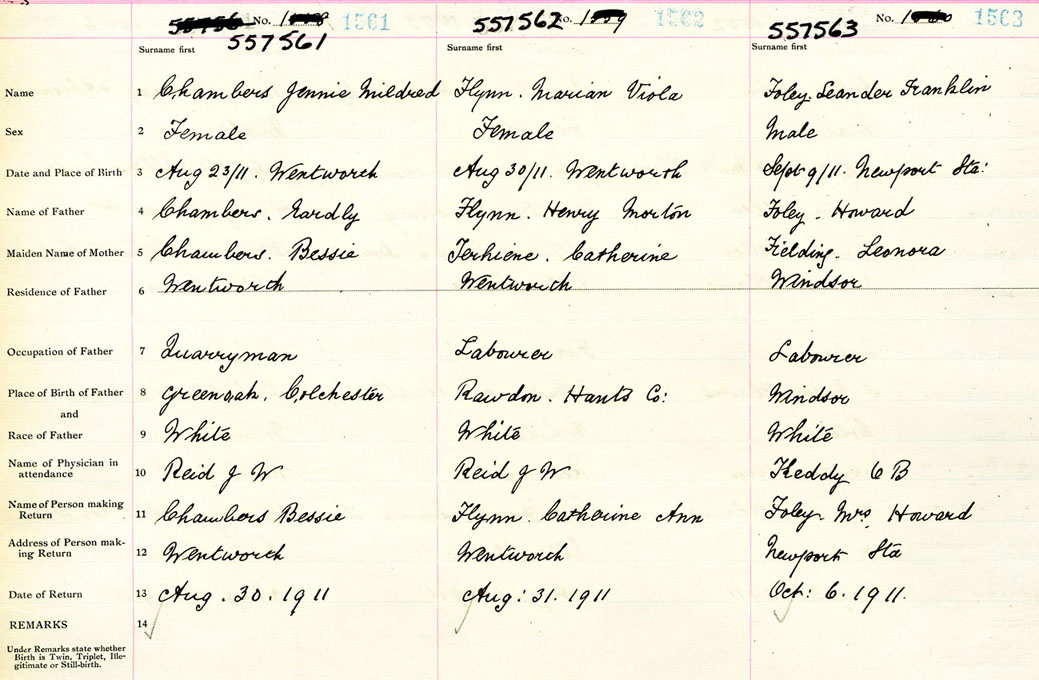 No. 1561 557562 No. 1562 557563 No. 1563
557561
Surname first Surname first Surname first
Name 1 Chambers Jennie Mildred Flynn. Marian Viola Foley. Leander Franklin
Sex 2 Female Female Male
Date and Place of Birth 3 Aug 23/11. Wentworth Aug 30/11. Wentworth Sept 9/11. Newport Sta:
Name of Father 4 Chambers. Eardly Flynn. Henry Morton Foley. Howard
Maiden Name of Mother 5 Chambers. Bessie Catherine Fielding. Leonora
Residence of Father 6 Wentworth Wentworth Windsor
Occupation of Father 7 Quarryman Labourer Labourer
Place of Birth of Father 8 Greenoak. Colchester Rawdon. Hants Co: Windsor
and
Race of Father 9 White White White
Name of Physician in
attendance 10 Reid J W Reid J W Keddy
Name of Person making
Return 11 Chambers Bessie Flynn. Catherine Ann Foley. Mrs Howard
Address of Person mak-
ing Return 12 Wentworth Wentworth Newport Sta
Date of Return 13 Aug. 30. 1911 Aug: 31. 1911 Oct: 6. 1911.
REMARKS 14
Under Remarks state whether
Birth is Twin, Triplet, Ille-
gitimate or Still-birth.